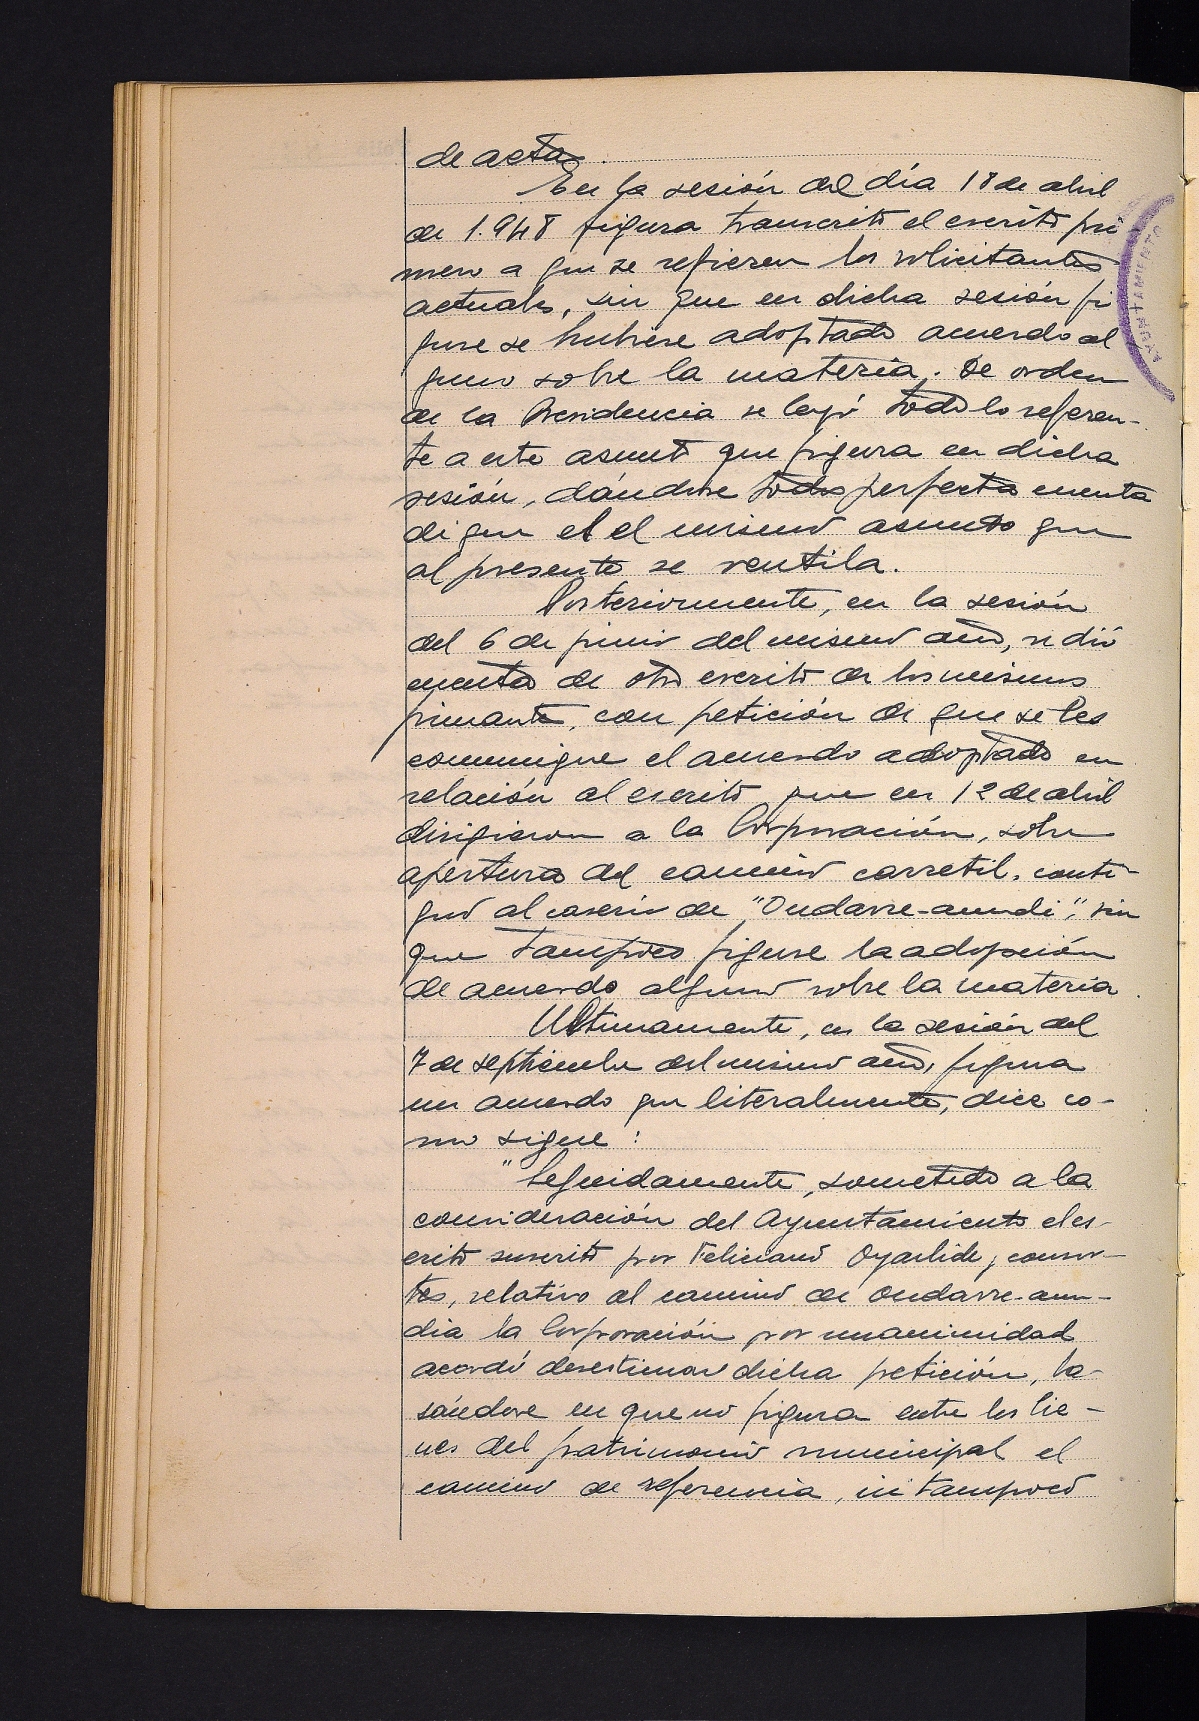 de acta.
En la sesión del día 18 de abril
de 1.948 figura transcrito el escrito pri
mero a que se refieren los solicitantes
actuales, sin que en dicha sesión fi
gure se hubiese adoptado acuerdo al
guno sobre la materia. De orden
de la Presidencia se leyó todo lo referen-
te a este asunto que figura en dicha
sesión, dándose todos perfecta cuenta
de que es el mismo asunto que
al presente se ventila.
Posteriormente, en la sesión
del 6 de junio del mismo año, se dió
cuenta de otro escrito de los mismos
firmantes, con petición de que se les
comunique el acuerdo adoptado en
relación al escrito que en 12 de abril
dirigieron a la Corporación, sobre
apertura del camino carretil, conti-
guo al caserío de "Ondarre-aundi", sin
que tampoco figure la adopción
de acuerdo alguno sobre la materia.
Ultimamente, en la sesión del
7 de septiembre del mismo año, figura
un acuerdo que literalmente, dice co-
mo sigue:
"Seguidamente, sometido a la
consideración del Ayuntamiento el es-
crito suscrito por Feliciano Oyarbide y consor-
tes, relativo al camino de Ondarre-aun-
dia la Corporación por unanimidad
acordó desestimar dicha petición, ba-
sándose en que no figura entre los bie-
nes del patrimonio municipal el
camino de referencia, ni tampoco
AYUNTAMIENTO